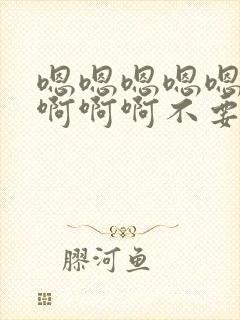 嗯嗯嗯嗯嗯
啊啊啊不要
膠河鱼